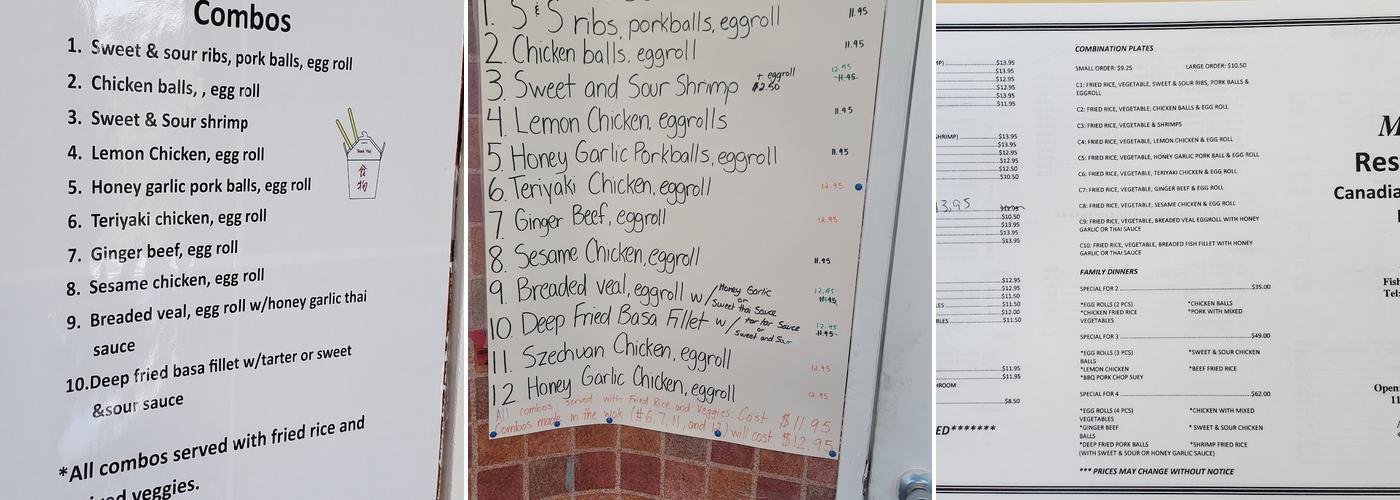 Combos
1. Sweet & sour ribs, pork balls, egg roll
2. Chicken balls, , egg roll
3. Sweet & Sour shrimp
4. Lemon Chicken, egg roll
5. Honey garlic pork balls, egg roll
6. Teriyaki chicken, egg roll
7. Ginger beef, egg roll
8. Sesame chicken, egg roll
9. Breaded veal, egg roll w/honey garlic thai
sauce
10.Deep fried basa fillet w/tarter or sweet
&sour sauce
*All combos served with fried rice and
veggies.
Thank You
食
物
1. S & S ribs, porkballs, eggroll 11.95
2. Chicken balls, eggroll 11.95
3. Sweet and Sour Shrimp + eggroll $2.50 12.95 11.95
4. Lemon Chicken, eggrolls 11.95
5. Honey Garlic Porkballs, eggroll 11.95
6. Teriyaki Chicken, eggroll 12.95
7. Ginger Beef, eggroll 12.95
8. Sesame Chicken, eggroll 11.95
9. Breaded veal, eggroll w/ Honey Garlic or Sweet thai Sauce 12.95 11.95
10. Deep Fried Basa Fillet w/ tartar Sauce or Sweet and Sour 12.95 11.95
11. Szechuan Chicken, eggroll 12.95
12. Honey Garlic Chicken, eggroll 12.95
All combos served with Fried Rice and Veggies. Cost $11.95
Combos made in the wok (#6, 7, 11, and 12) will cost $12.95
$13.95
$13.95
$12.95
$12.95
$13.95
$11.95
SHRIMP) $13.95
$13.95
$12.95
$12.95
$12.50
$10.50
13,95
$10.50
$13.95
$13.95
$13.95
$12.95
$12.95
$11.50
$11.50
$12.00
$11.50
$11.95
$11.95
$8.50
ED*******
COMBINATION PLATES
SMALL ORDER: $9.25 LARGE ORDER: $10.50
C1: FRIED RICE, VEGETABLE, SWEET & SOUR RIBS, PORK BALLS &
EGGROLL
C2: FRIED RICE, VEGETABLE, CHICKEN BALLS & EGG ROLL
C3: FRIED RICE, VEGETABLE & SHRIMPS
C4: FRIED RICE, VEGETABLE, LEMON CHICKEN & EGG ROLL
C5: FRIED RICE, VEGETABLE, HONEY GARLIC PORK BALL & EGG ROLL
C6: FRIED RICE, VEGETABLE, TERIYAKI CHICKEN & EGG ROLL
C7: FRIED RICE, VEGETABLE, GINGER BEEF & EGG ROLL
C8: FRIED RICE, VEGETABLE, SESAME CHICKEN & EGG ROLL
C9: FRIED RICE, VEGETABLE, BREADED VEAL EGGROLL WITH HONEY
GARLIC OR THAI SAUCE
C10: FRIED RICE, VEGETABLE, BREADED FISH FILLET WITH HONEY
GARLIC OR THAI SAUCE
FAMILY DINNERS
SPECIAL FOR 2 $35.00
*EGG ROLLS (2 PCS) *CHICKEN BALLS
*CHICKEN FRIED RICE *PORK WITH MIXED
VEGETABLES
SPECIAL FOR 3 $49.00
*EGG ROLLS (3 PCS) *SWEET & SOUR CHICKEN
BALLS
*LEMON CHICKEN *BEEF FRIED RICE
*BBQ PORK CHOP SUEY
SPECIAL FOR 4 $62.00
*EGG ROLLS (4 PCS) *CHICKEN WITH MIXED
VEGETABLES
*GINGER BEEF * SWEET & SOUR CHICKEN
BALLS
*DEEP FRIED PORK BALLS *SHRIMP FRIED RICE
(WITH SWEET & SOUR OR HONEY GARLIC SAUCE)
*** PRICES MAY CHANGE WITHOUT NOTICE
M
Res
Canadia
Fish
Tel:
Open
11